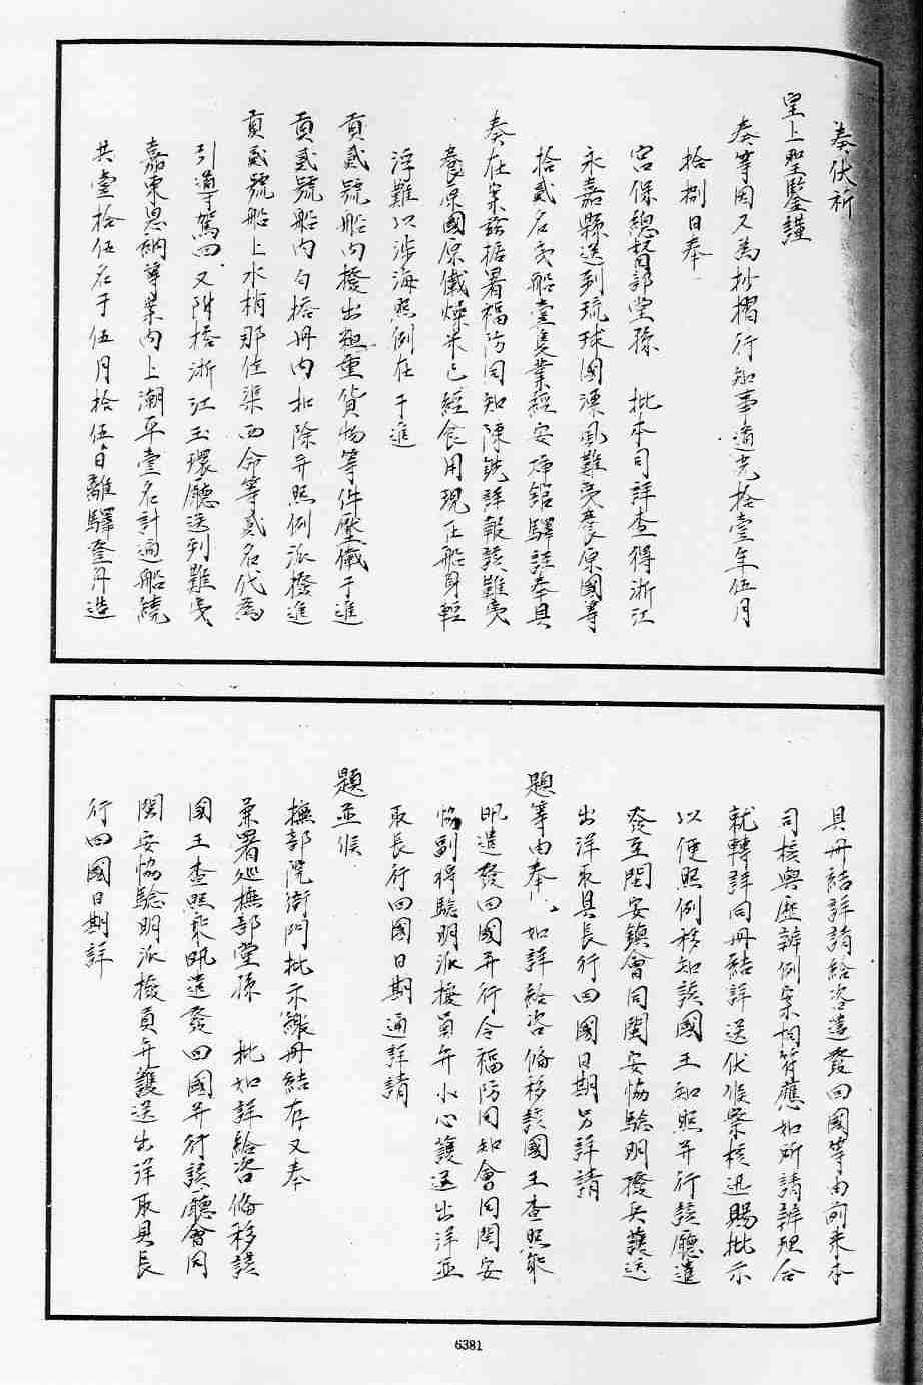 奏伏祈
皇上聖鑒謹
奏等因又為抄摺行知事道光拾壹年伍月
拾捌日奉
宮保總督部堂孫　批本司詳查得浙江
永嘉縣送到琉球國漂風難夷養原國等
拾貳名夷船壹隻業經安揷館驛詳奉具
奏在案茲據署福防同知陳銑詳報該難夷
養原國原儎燥米已經食用現在船身輕
浮難以涉海照例在于進
貢貳號船內撥出粗重貨物等件壓儎于進
貢貳號船內勻撥冊內扣除并照例派撥進
貢貳號船上水梢那住渠西命等貳名代為
引導駕回又附搭浙江玉環廳送到難夷
嘉東恩納等案內上潮平壹名計通船繞
共壹拾伍名于伍月拾伍日離驛登舟造
具冊結詳請給咨遣發回國等由前來本
司核與歷辦例案相符應如所請辦理合
就轉詳同冊結詳送伏候察核迅賜批示
以便照例移知該國王知照并行該廳遣
發至閩安鎮會同閩安協驗明撥兵護送
出洋取具長行回國日期另詳請
題等由奉批如詳給咨俻移該國王查照飭
即遣發回國并行令福防同知會同閩安
協副將驗明派撥員弁小心護送出洋並
取長行回國日期通詳請
題並候
撫部院衙門批示繳冊結存又奉
兼署巡撫部堂孫　批如詳給咨俻移該
國王查照飭即遣發回國并行該廳會同
閩安協驗明派撥員弁護送出洋取具長
行回國日期詳
6381